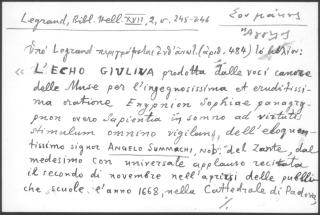 Legrand, Bibl. Hell. XVII, 2, σ. 245-246
Σουμάκης
Ἄγγελος
Ὑπὸ Legrand περιγράφεται (ἀριθ. 484) τὸ βιβλίον:
« L'ECHO GIULIVA prodotta dalle voci canore
delle Muse per l'ingegnosissima et eruditissi-
ma oratione Enypnion Sophiae panagyr-
pnon overo Sapientia in somno ad virtutis
stimulum omnino vigilans, dell'eloquen-
tissimo signor ANGELO SUMMACHI, nob. del Zante, dal
medesimo con universale applauso recitata
il secondo di novembre nell'aprirsi delle publi-
che scuole l'anno 1668, nella Cattedrale di Padova,